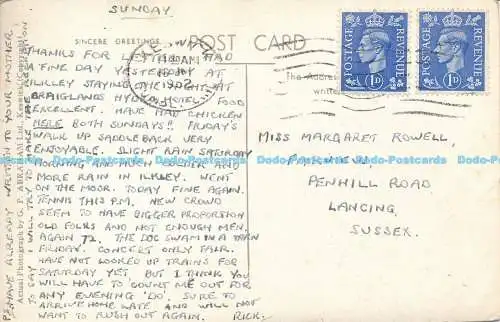 SUNDAY
SINCERE GREETINGS
POST CARD
THANKS FOR LETTER. HAD
A FINE DAY YESTERDAY AT
ILKLEY STAYING THE AT
CRAIGLANDS HYDRO HOTEL. FOOD
EXCELLENT. HAVE HAD CHICKEN
HERE BOTH SUNDAYS!! FRIDAY'S
WALK UP SADDLEBACK VERY
ENJOYABLE. SLIGHT RAIN SATURDAY
MORNING AND MUCH COLDER AND
MORE RAIN IN ILKLEY. WENT
ON THE MOOR. TODAY FINE AGAIN.
TENNIS THIS P.M. NEW CROWD
SEEM TO HAVE BIGGER PROPORTION
OLD FOLKS AND NOT ENOUGH MEN.
AGAIN 72. THE DOC SWAM IN A TARN
FRIDAY. CONCERT ONLY FAIR.
HAVE NOT LOOKED UP TRAINS FOR
SATURDAY YET. BUT I THINK YOU
WILL HAVE TO COUNT ME OUT FOR
ANY EVENING 'DO'. SURE TO
ARRIVE HOME LATE AND WILL NOT
WANT TO RUSH OUT AGAIN. RICK.
P.S. HAVE ALREADY WRITTEN TO YOUR MOTHER
TO SAY I WILL TRY TO MAKE THE RECEPTION
Actual Photograph by G. P. ABRAHAM Ltd., Keswick
The Address
MISS MARGARET ROWELL,
FAIRVIEW,
PENHILL ROAD
LANCING,
SUSSEX.
POSTAGE
REVENUE
1D
POSTAGE
REVENUE
1D
Da-Postcards Da-Postcards Da-Postcards Da-Postcards Da-Postcards Da-Postcards